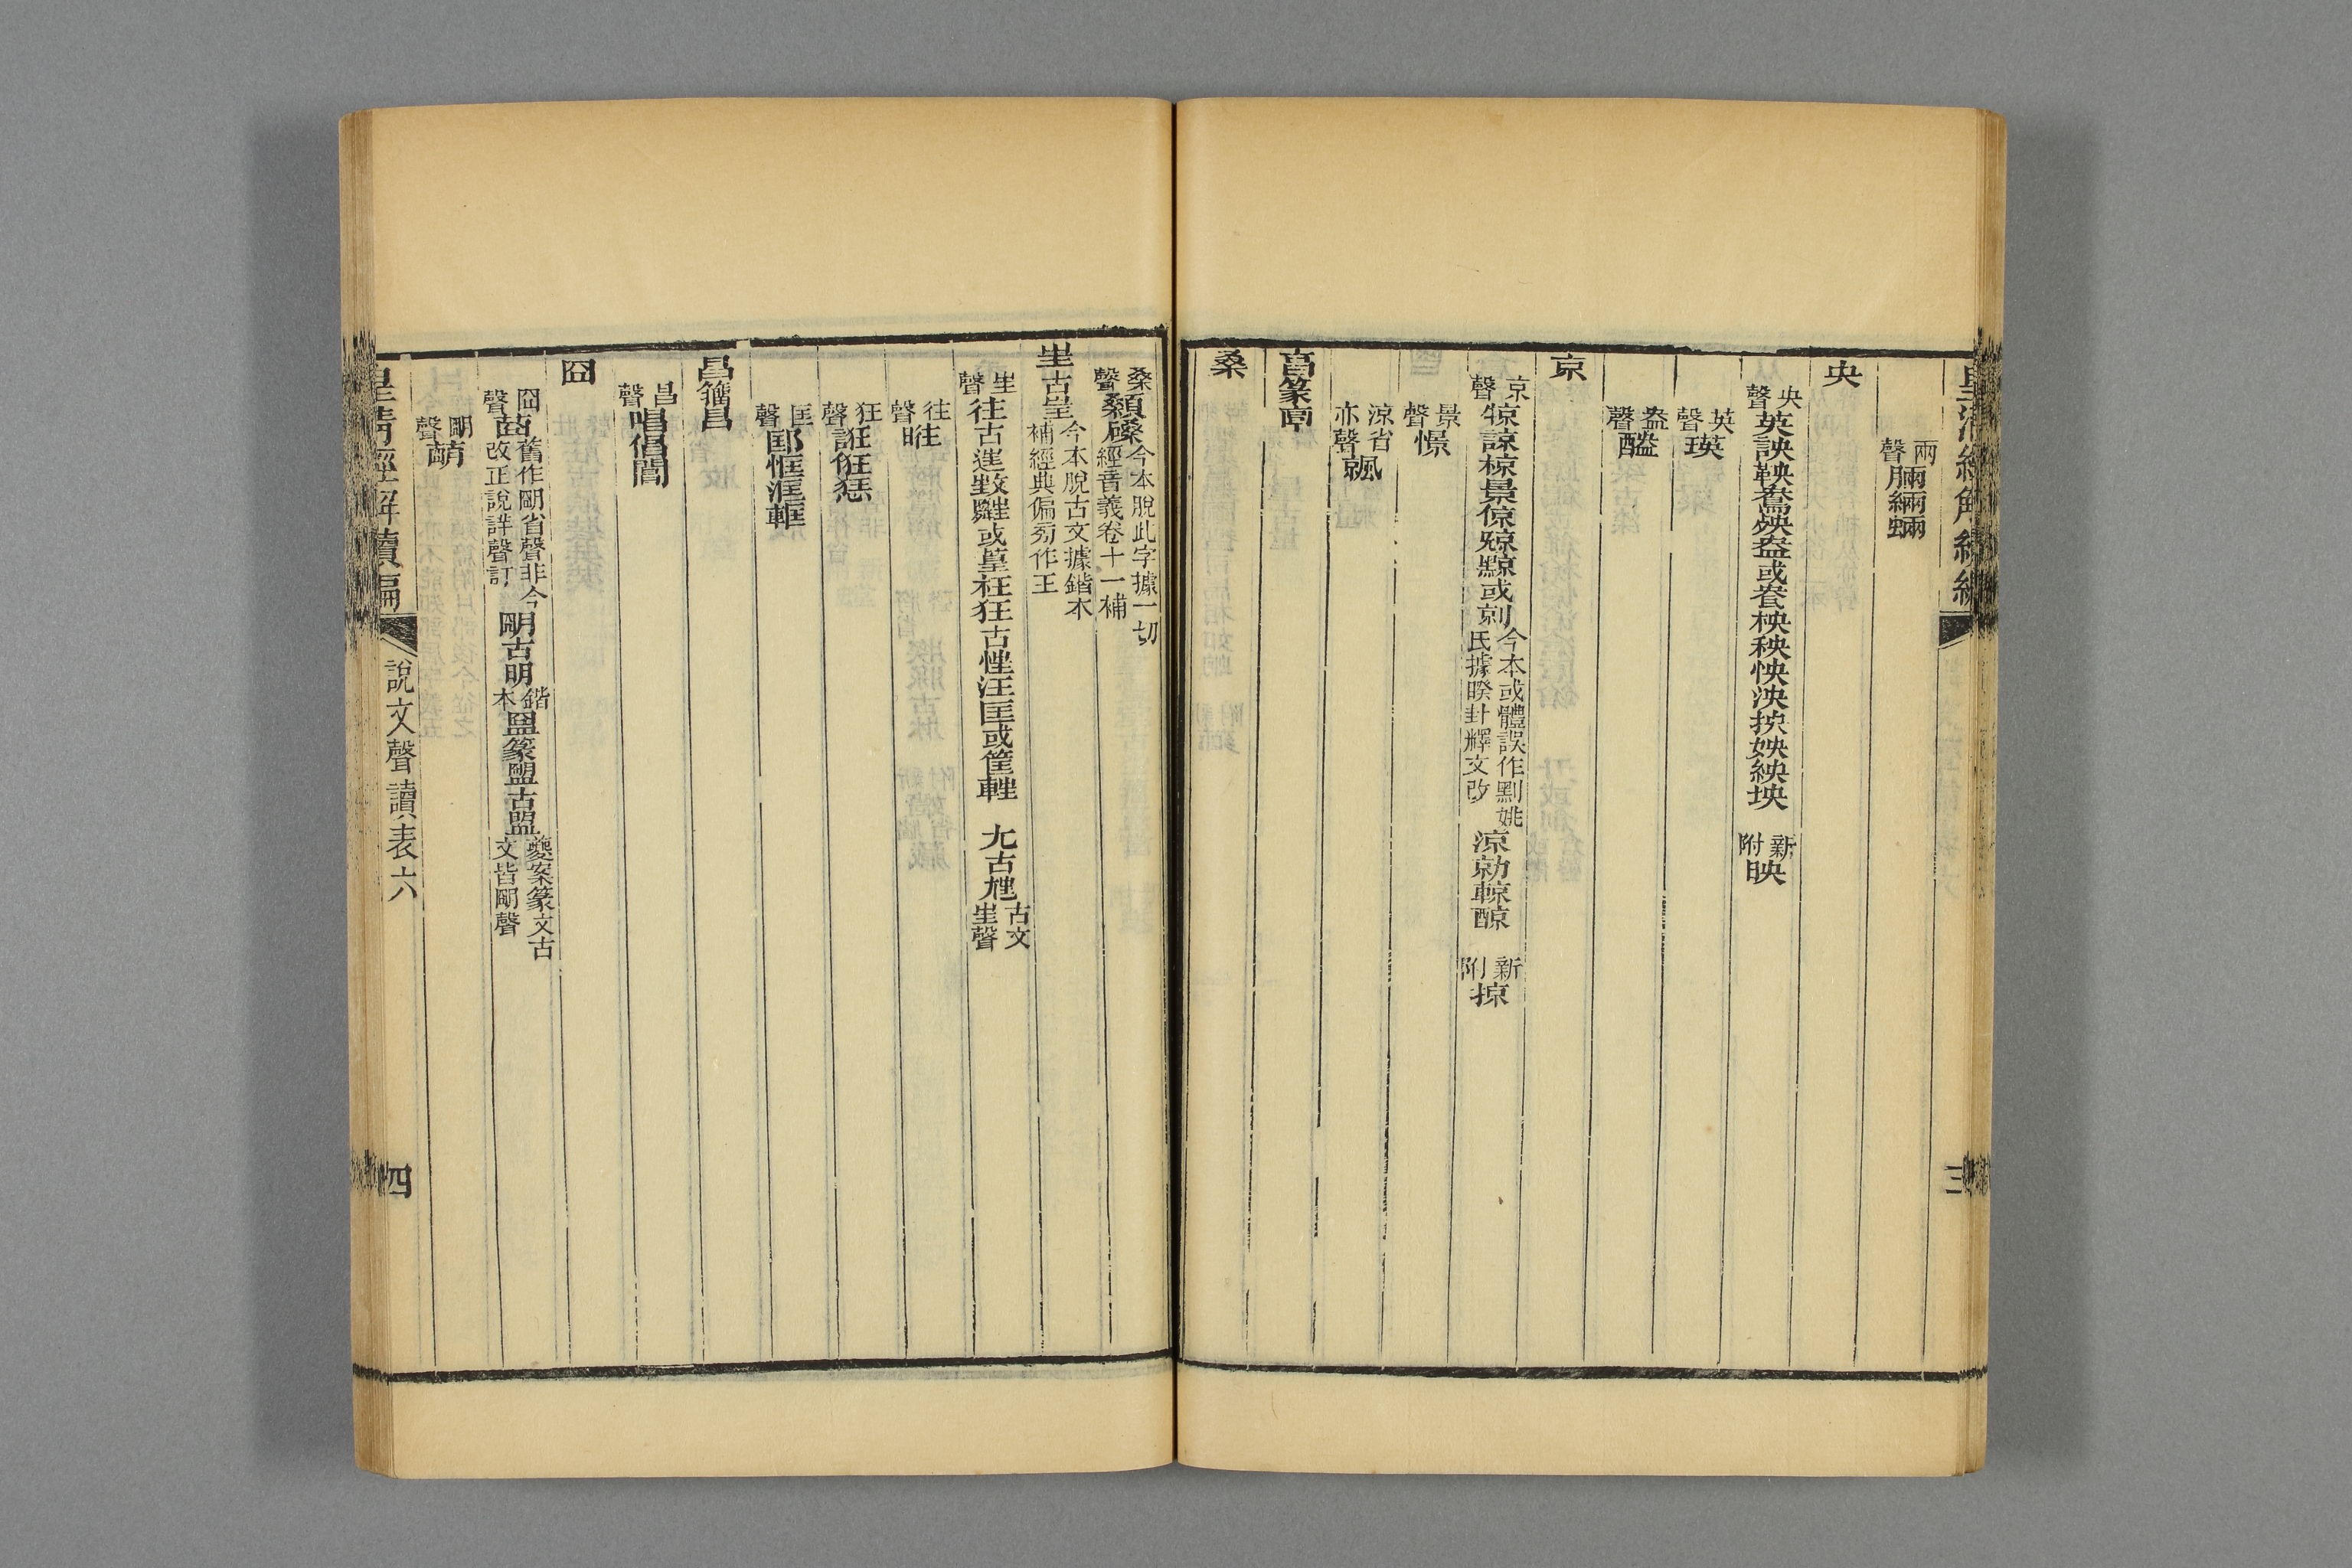 皇清經解續編
三
兩聲𦛗緉蜽
央
央聲英訣鞅鴦殃盎或㼜柍秧怏泱抰姎紻坱 新附映
英聲瑛
盎聲醠
京
京聲䭘諒椋景倞𣄴黥或剠今本或體誤作剠姚氏據暌封釋文改涼勍輬醇 新附掠
景聲憬
涼省亦聲飆
亯篆亭
桑
桑聲顙磉今本脫此字據一切經音義卷十一補
㞷古㞷今本脫古文據鍇本補經典偏旁作王
㞷聲往古𨓹或篁枉狂古𢘇汪匡或筐軖 尢古尪古文㞷聲
往聲暀
狂聲誑俇惩
匡聲邼恇洭軭
昌籀昌
昌聲唱倡閶
囧
囧聲莔舊作朙省聲非今改正說詳聲訂朙古明鍇本盟篆盟古盟夔案篆文古文皆朙聲
朙聲萌
皇清經解續編
說文聲讀表六
四